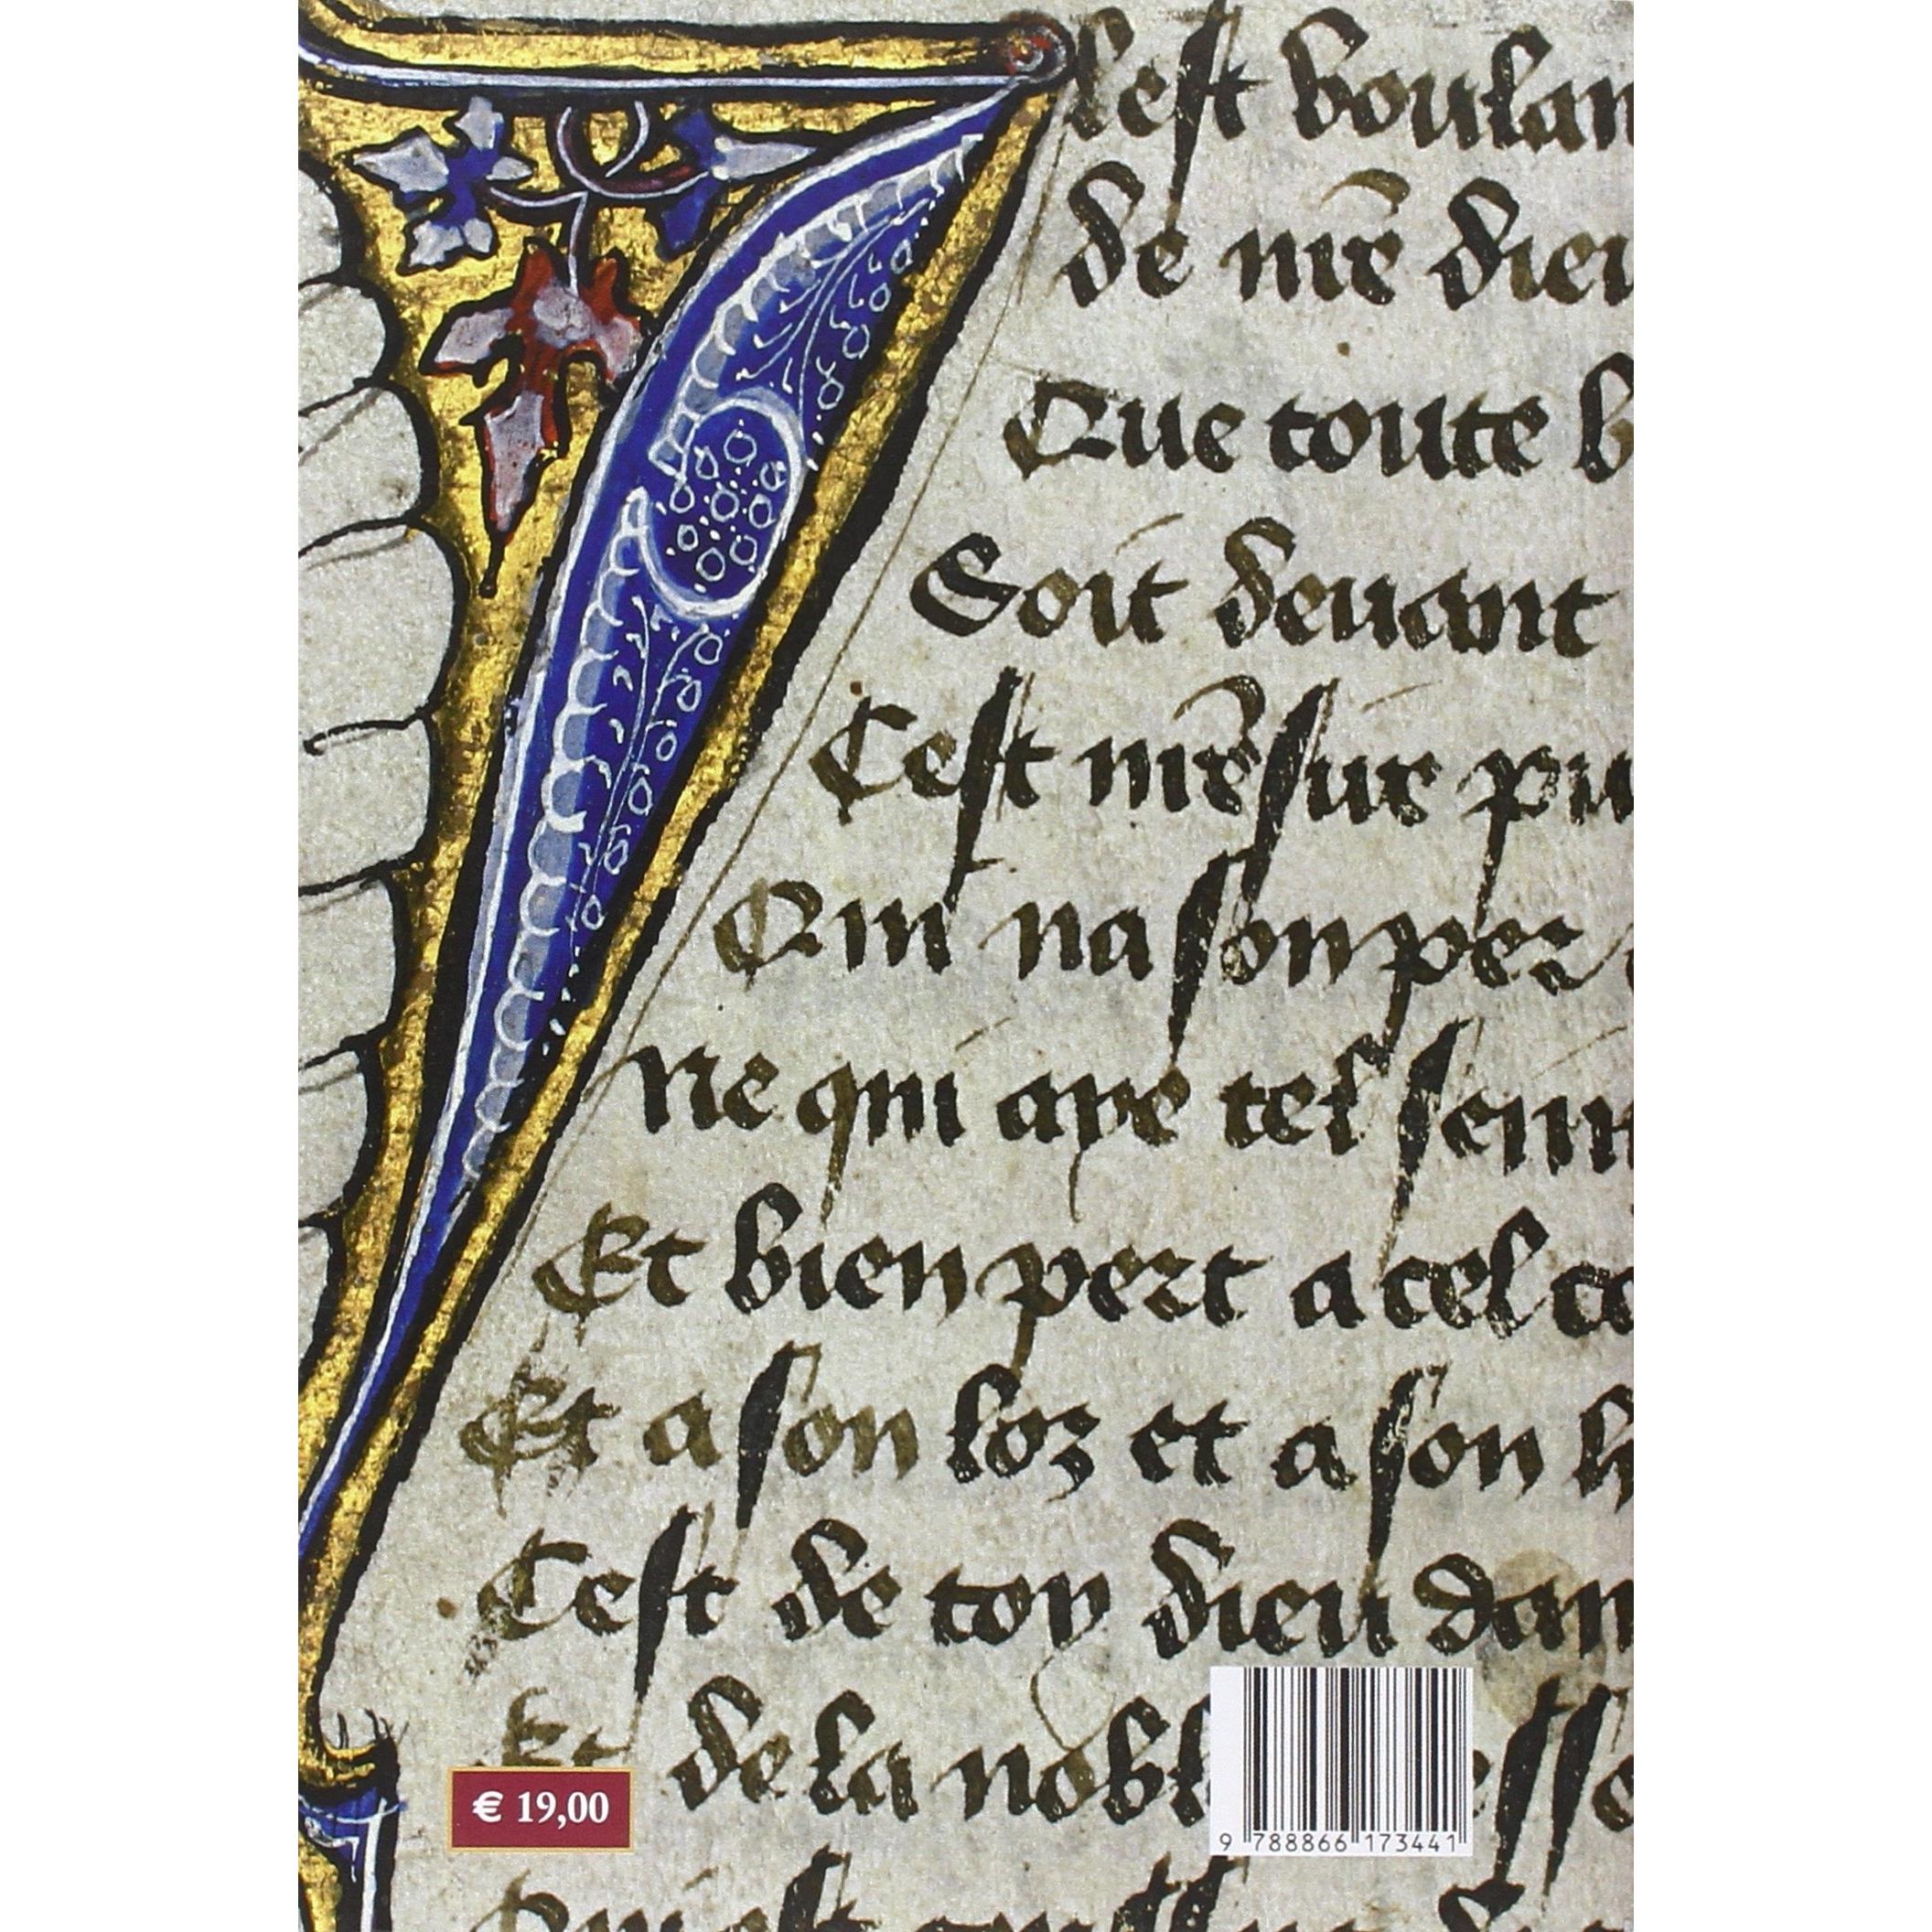 lest voulan
de nre dieu
Que toute b
Soit deuant
Cest nre sur pu
Qui na son per
Ne qui aye tel senn
Et bien pert a cel ce
Et a son loz et a son h
Cest de toy dieu dam
Et de la nobl esse
€ 19,00
9 788866 173441